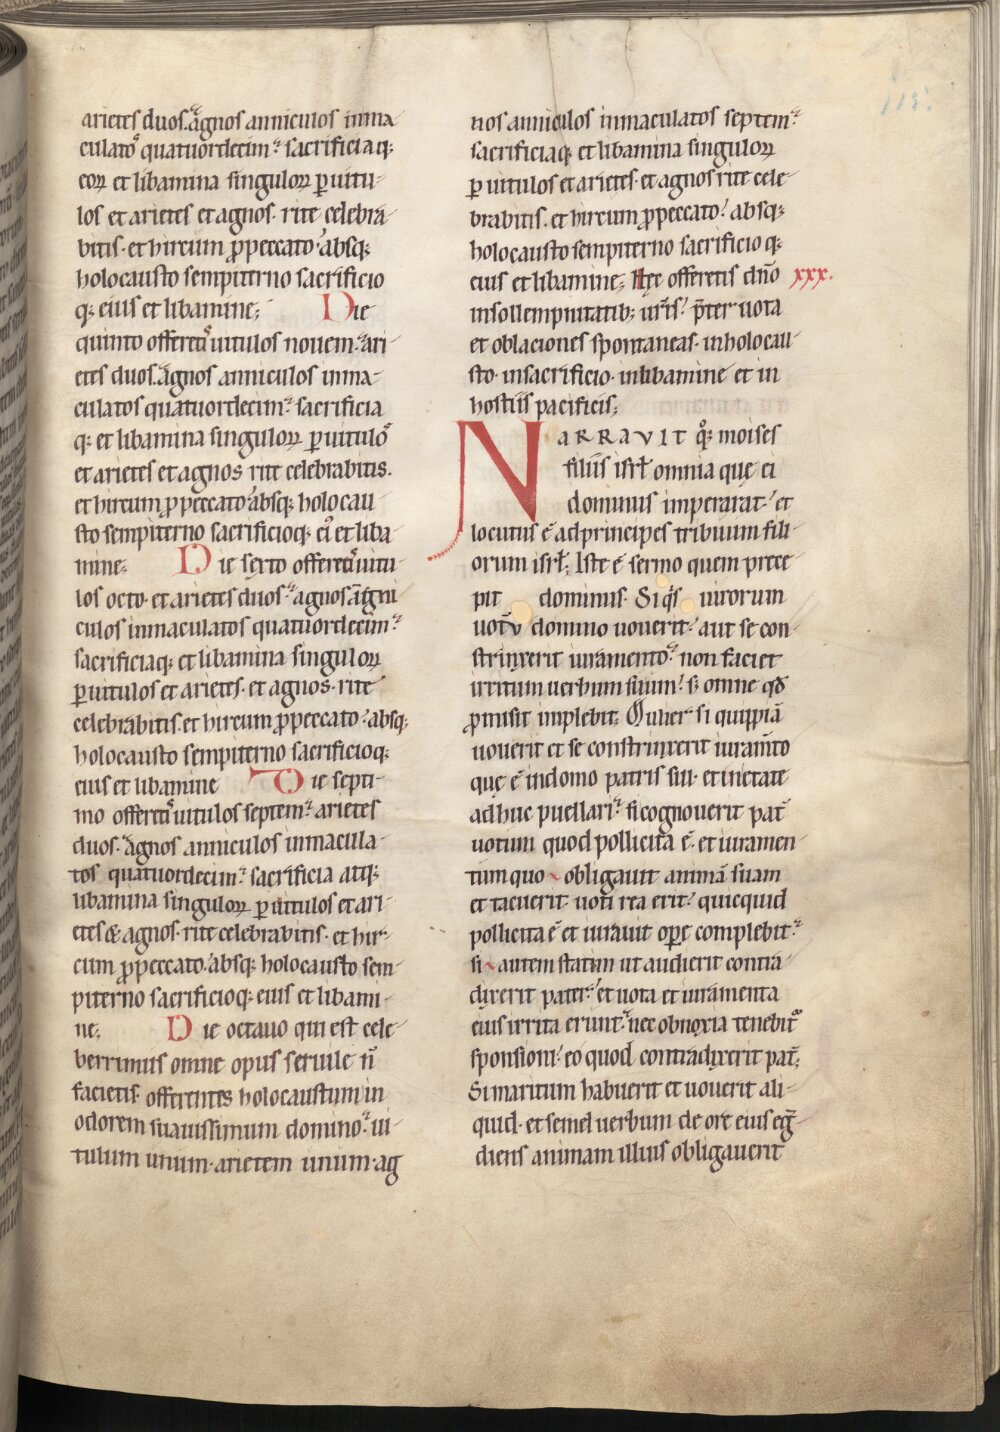 115.
arietes duos. agnos anniculos inma
culatoſ quatuordecim. sacrificiaq;
eoꝝ et libamina singuloꝝ ꝑ uitu-
los et arietes et agnos. rite celebra-
bitis. et hircum ꝓpeccato. absq;
holocausto sempiterno sacrificio
q; eius et libamine; Die
quinto offeretis uitulos nouem. ari-
etes duos. agnos anniculos inma-
culatos quatuordecim. sacrificia
q; et libamina singuloꝝ ꝑ uitulos
et arietes et agnos rite celebrabitis.
et hircum ꝓpeccato absq; holocau
sto sempiterno sacrificioq; ei᷒ et liba
mine; Die sexto offeretis uitu-
los octo. et arietes duos. agnos anni
culos inmaculatos quatuordecim.
sacrificiaq; et libamina singuloꝝ
ꝑ uitulos et arietes. et agnos. rite
celebrabitis. et hircum ꝓpeccato. absq;
holocausto sempiterno sacrificioq;
eius et libamine Die septi-
mo offeretis uitulos septem. arietes
duos. agnos anniculos inmacula-
tos quatuordecim. sacrificia atq;
libamina singuloꝝ ꝑ uitulos et ari-
etes & agnos. rite celebrabitis. et hir-
cum ꝓpeccato. absq; holocausto sem-
piterno sacrificioq; eius et libami-
ne; Die octauo qui est cele-
berrimus omne opus seruile n̄
facietis. offerentes holocaustum in
odorem suauissimum domino. ui-
tulum unum. arietem unum. ag
nos anniculos inmaculatos septem.
sacrificiaq; et libamina singuloꝝ
ꝑ uitulos et arietes. et agnos rite cele-
brabitis. et hircum ꝓpeccato. absq;
holocausto sempiterno sacrificio q;
eius et libamine; Hęc offeretis dn̄o xxx.
insollempnitatib; ur̄is. p̄ter uota
et oblaciones spontaneas. inholocau-
sto. insacrificio. inlibamine et in
hostiis pacificis;
NARRAVIT q̨; moises
filiis isrł omnia que ei
dominus imperarat. et
locutus ē adprincipes tribuum fili-
orum isrł; Iste ē sermo quem prece-
pit dominus. Siq̇s uirorum
uotv̄ domino uouerit. aut se con-
strinxerit iuramento. non faciet
irritum uerbum suum. s; omne qd̄
ꝓmisit implebit. Mulier si quippiā
uouerit et se constrinxerit iuram̄to
que ē indomo patris sui. et inetate
adhuc puellari. si cognouerit pat̄
uotum quod pollicita ē. et iuramen-
tum quo obligauit animā suam
et tacuerit. uoti rea erit. quicquid
pollicita ē et iurauit opere complebit.
si autem statim ut audierit contra-
dixerit pater. et uota et iuramenta
eius irrita erunt. nec obnoxia tenebit᷑
sponsioni. eo quod contradixerit pat̄;
Si maritum habuerit et uouerit ali-
quid. et semel uerbum de ore eius eḡ-
diens animam illius obligauerit